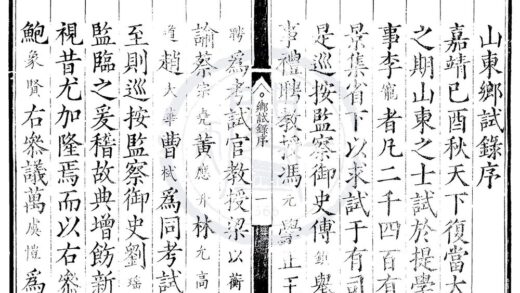 山東鄉試錄序
嘉靖己酉秋天下復當大
之期山東之士試於提學
事李寵者凡二千四百有
景集省下以求試于有司
是巡按監察御史傅鎮舉
事禮聘教授馮元學正王
鄉試錄序
一
聘為考試官教授梁以蘅
諭蔡宗堯黃應升林允高
道趙大華曹栻為同考試
至則巡按監察御史劉瑤
監臨之爰稽故典增飭新
視昔尤加隆焉而以右叅
鮑象賢右叅議萬虞愷為